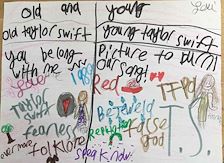 old and young
old taylor swift
young taylor swift
you belong with me
Picture to burn
our song
Lover
1989
Red
taylor swift
fearless
Bejeweled
Reputation
T.S.
evermore
folklore
speak now